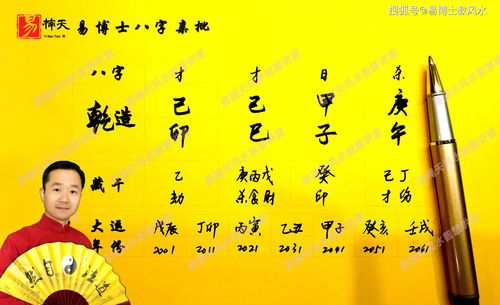 搜狐号@易博士教风水
易 天 易博士八字集批
八字 才 才 日 杀
乾造 己 己 甲 庚
卯 巳 子 午
藏干 乙 庚丙戊 癸 己丁
劫 杀食财 印 才伤
大运 戊辰 丁卯 丙寅 乙丑 甲子 癸亥 壬戌
年份 2001 2011 2021 2031 2041 2051 2061